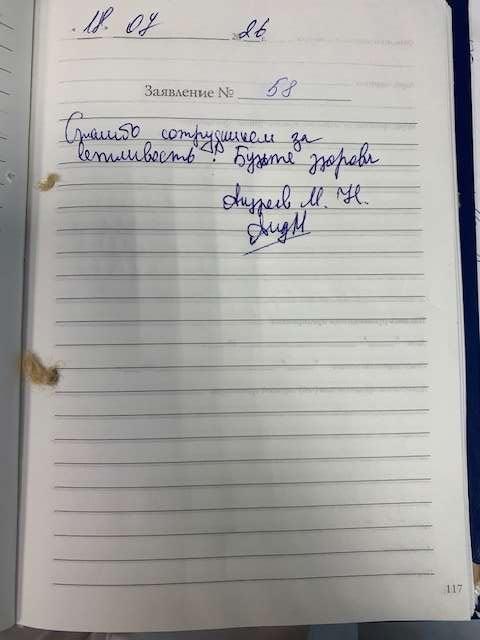 18. 04 2026
Заявление № 58
Спасибо сотрудникам за
вежливость! Будьте здоровы
Андреев М. Н.
117